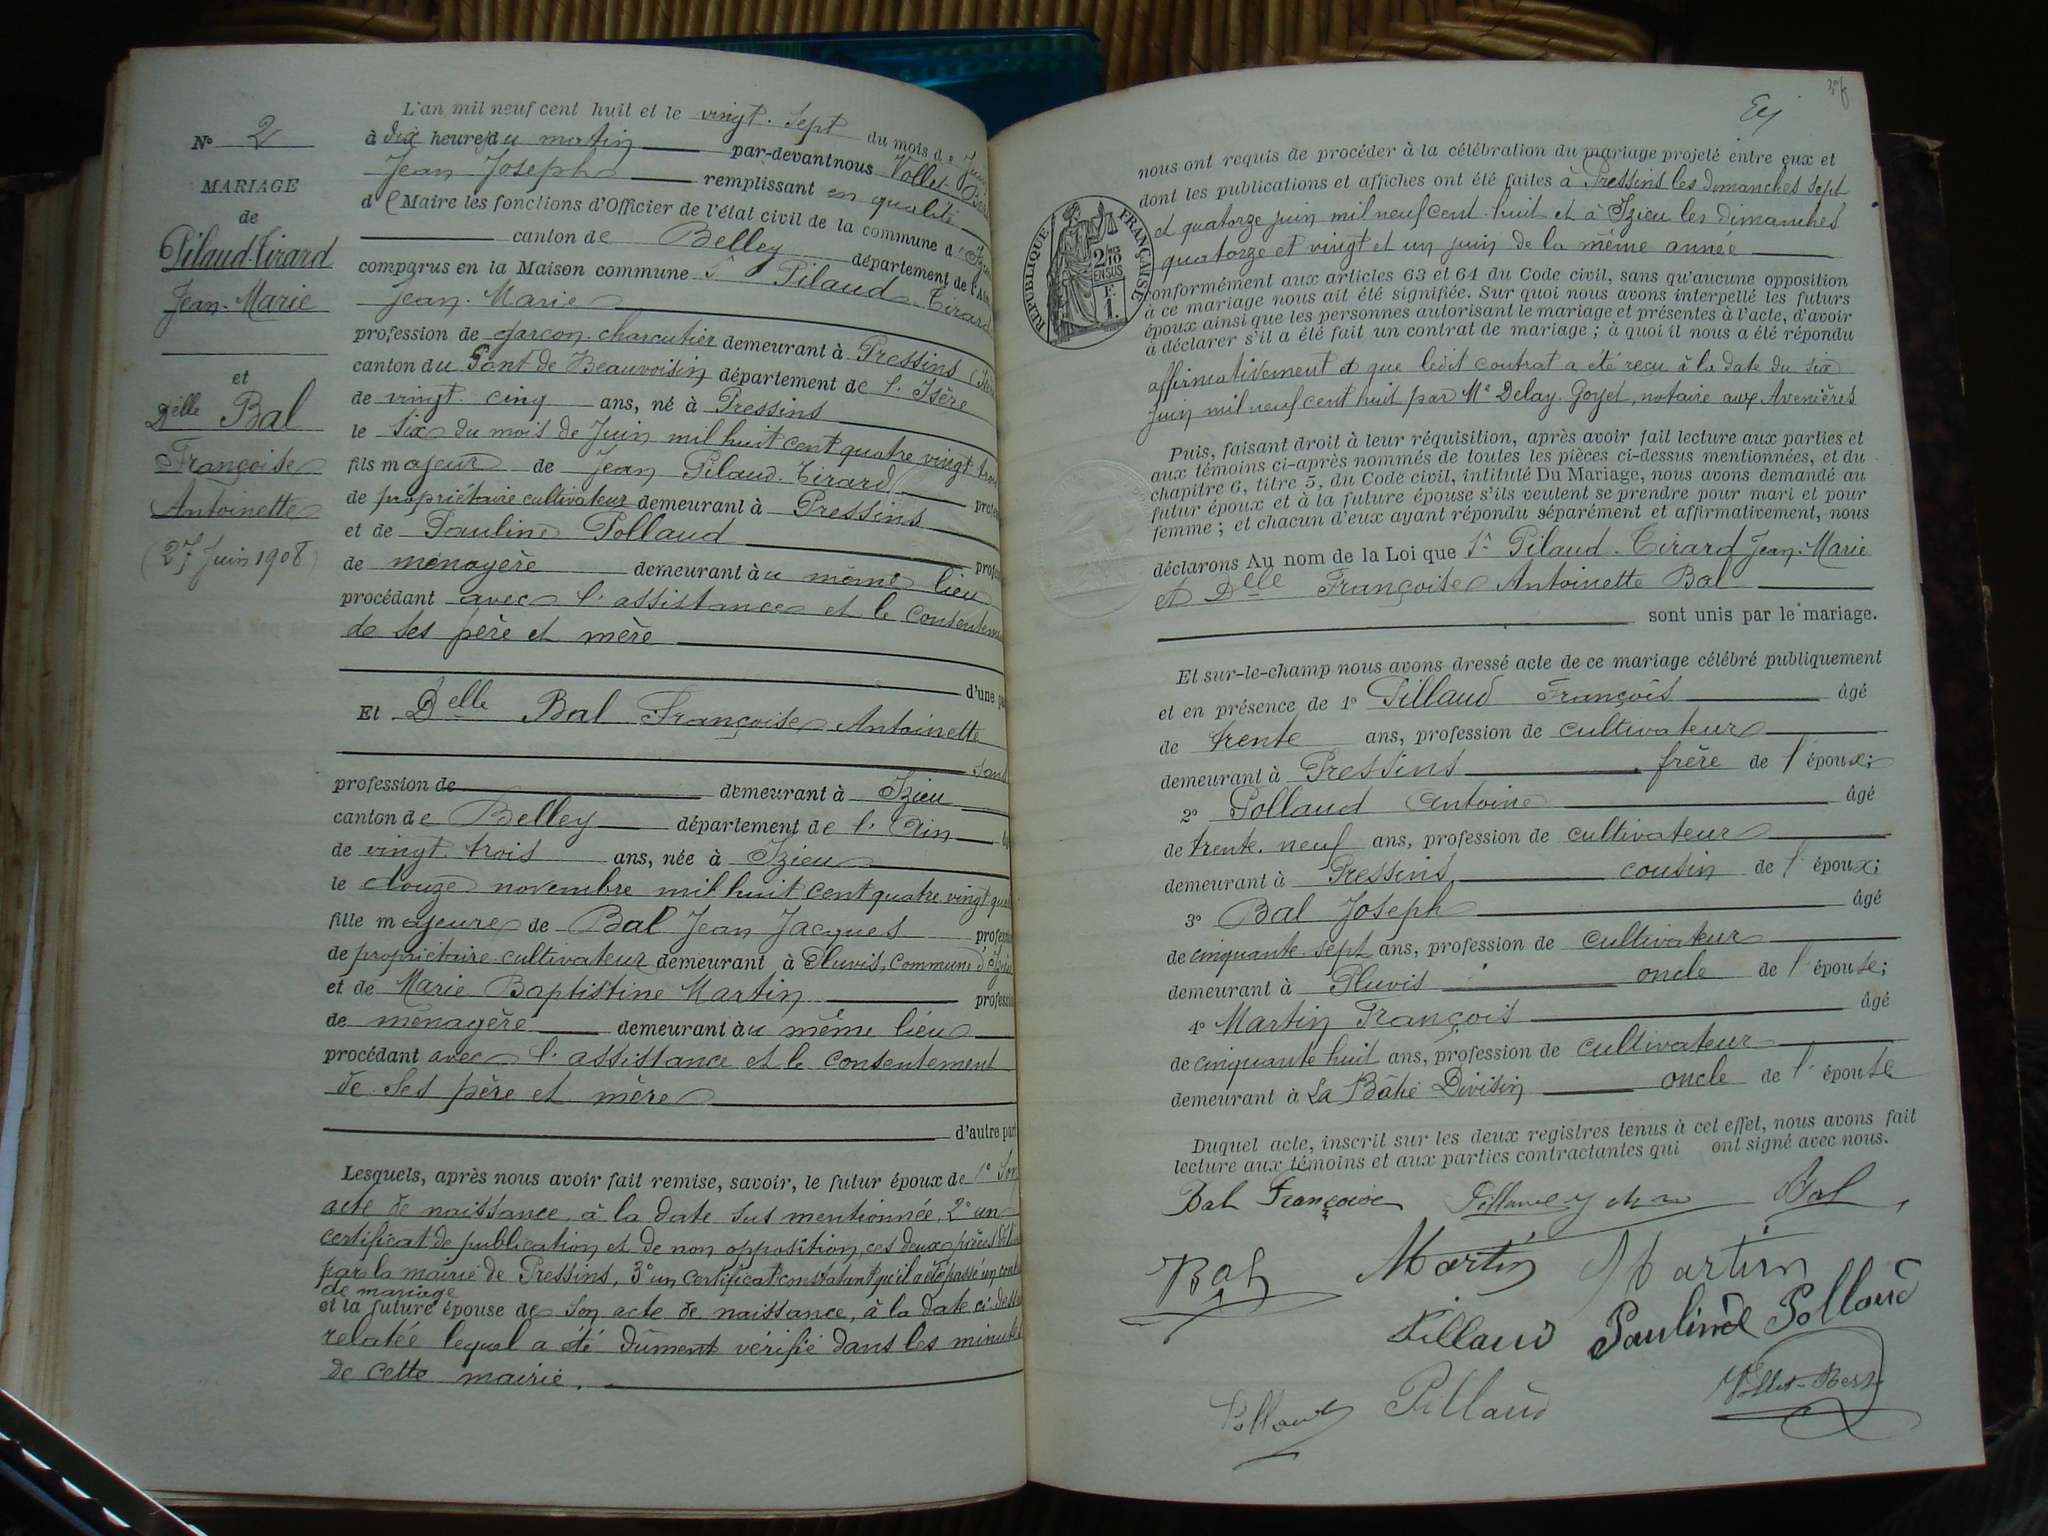 N° 2
MARIAGE
de
Pilaud-Tirard
Jean-Marie
et
Delle Bal
Françoise
Antoinette
(27 Juin 1908)
L'an mil neuf cent huit et le vingt-sept du mois de Juin
à dix heures du matin par-devant nous Vollet-Bert
Jean Joseph remplissant en qualité
de Maire les fonctions d'Officier de l'état civil de la commune d'Izieu
canton de Belley département de l'Ain
comparus en la Maison commune Sr Pilaud-Tirard
Jean-Marie
profession de garçon charcutier demeurant à Pressins
canton du Pont de Beauvoisin département de l'Isère
de vingt-cinq ans, né à Pressins
le six du mois de Juin mil huit cent quatre vingt trois
fils majeur de Jean Pilaud-Tirard
de propriétaire cultivateur demeurant à Pressins
et de Pauline Pollaud
de ménagère demeurant au même lieu
procédant avec l'assistance et le consentement
de ses père et mère
d'une part
Et Delle Bal Françoise Antoinette
sans
profession de demeurant à Izieu
canton de Belley département de l'Ain
de vingt-trois ans, née à Izieu
le douze novembre mil huit cent quatre vingt quatre
fille majeure de Bal Jean Jacques profession
de propriétaire cultivateur demeurant à Pluvis, commune d'Izieu
et de Marie Baptistine Martin profession
de ménagère demeurant au même lieu
procédant avec l'assistance et le consentement
de ses père et mère
d'autre part
Lesquels, après nous avoir fait remise, savoir, le futur époux de 1° son
acte de naissance, à la date sus mentionnée, 2° un
certificat de publication et de non opposition, ces deux pièces
par la mairie de Pressins, 3° un certificat constatant qu'il a été passé un contrat
de mariage
et la future épouse de son acte de naissance, à la date ci-dessus
relatée lequel a été dûment vérifié dans les minutes
de cette mairie.
nous ont requis de procéder à la célébration du mariage projeté entre eux et
dont les publications et affiches ont été faites à Pressins les dimanches sept
et quatorze juin mil neuf cent huit et à Izieu les dimanches
quatorze et vingt et un juin de la même année
conformément aux articles 63 et 64 du Code civil, sans qu'aucune opposition
à ce mariage nous ait été signifiée. Sur quoi nous avons interpellé les futurs
époux ainsi que les personnes autorisant le mariage et présentes à l'acte, d'avoir
à déclarer s'il a été fait un contrat de mariage ; à quoi il nous a été répondu
affirmativement et que ledit contrat a été reçu à la date du six
Juin mil neuf cent huit par Me Delay-Goyet, notaire aux Avenières
Puis, faisant droit à leur réquisition, après avoir fait lecture aux parties et
aux témoins ci-après nommés de toutes les pièces ci-dessus mentionnées, et du
chapitre 6, titre 5, du Code civil, intitulé Du Mariage, nous avons demandé au
futur époux et à la future épouse s'ils veulent se prendre pour mari et pour
femme ; et chacun d'eux ayant répondu séparément et affirmativement, nous
déclarons Au nom de la Loi que Sr Pilaud-Tirard Jean-Marie
et Delle Françoise Antoinette Bal
sont unis par le mariage.
Et sur-le-champ nous avons dressé acte de ce mariage célébré publiquement
et en présence de 1° Pillaud François âgé
de trente ans, profession de cultivateur
demeurant à Pressins frère de l'époux;
2° Pollaud Antoine âgé
de trente-neuf ans, profession de cultivateur
demeurant à Pressins cousin de l'époux;
3° Bal Joseph âgé
de cinquante-sept ans, profession de cultivateur
demeurant à Pluvis oncle de l'épouse;
4° Martin François âgé
de cinquante huit ans, profession de cultivateur
demeurant à La Bâtie Divisin oncle de l'épouse
Duquel acte, inscrit sur les deux registres tenus à cet effet, nous avons fait
lecture aux témoins et aux parties contractantes qui ont signé avec nous.
Bal Françoise Bal
Bal Martin Martin
Pillaud Pauline Pollaud
Pollaud Pillaud Vollet-Bert
RÉPUBLIQUE FRANÇAISE
2/10
EN SUS
F.
1.